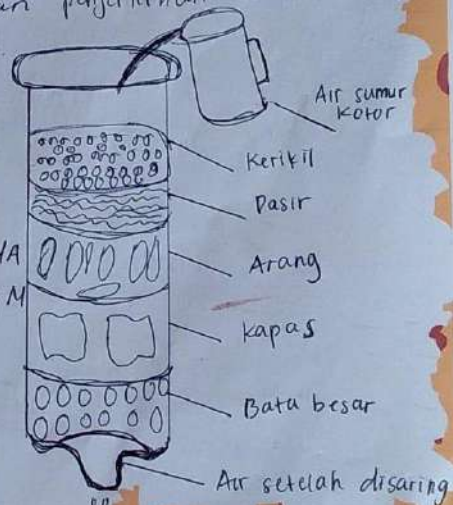 penjernihan
Air sumur
kotor
Kerikil
Pasir
Arang
Kapas
Batu besar
Air setelah disaring